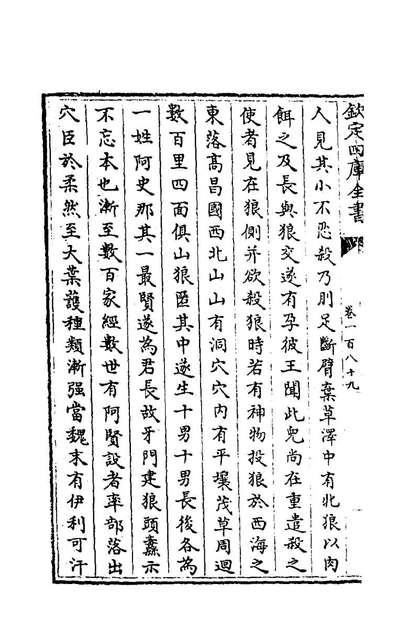 欽定四庫全書
卷一百八十九
人見其小不忍殺乃刖足斷臂棄草澤中有牝狼以肉
餌之及長與狼交遂有孕彼王聞此兒尚在重遣殺之
使者見在狼側并欲殺狼時若有神物投狼於西海之
東落髙昌國西北山山有洞穴穴内有平壤茂草周迴
數百里四面俱山狼匿其中遂生十男十男長後各為
一姓阿史那其一最賢遂為君長故牙門建狼頭纛示
不忘本也漸至數百家經數世有阿賢設者率部落出
穴臣於柔然至大葉䕶種類漸强當魏末有伊利可汗